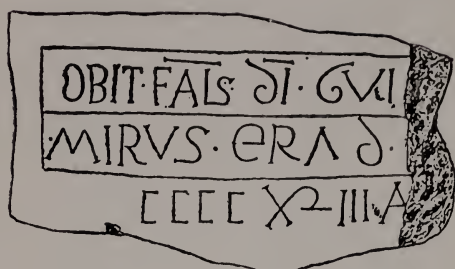 OBIT·FĀLS· D̄I·GVI
MIRVS·ERA D·
CCCC XL III·A